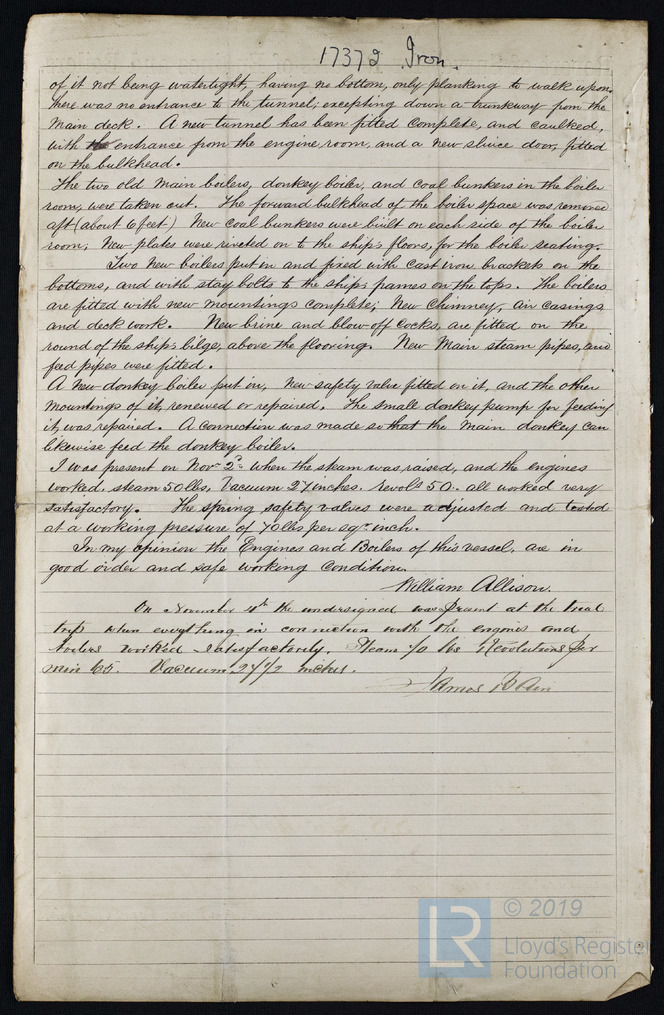 17372 Iron.
of it not being watertight, having no bottom, only planking to walk upon.
there was no entrance to the tunnel; excepting down a trunkway from the
Main deck. A new tunnel has been fitted complete, and caulked,
with the entrance from the engine room, and a new sluice door, fitted
on the bulkhead.
The two old main boilers, donkey boiler, and coal bunkers in the boiler
room, were taken out. The forward bulkhead of the boiler space was removed
aft (about 6 feet) New coal bunkers were built on each side of the boiler
room; New plates were riveted on to the ship's floors, for the boiler seating.
Two New boilers put in and fixed with cast iron brackets on the
bottoms, and with stay bolts to the ships frames on the tops. The boilers
are fitted with new mountings complete; New Chimney, air casings
and deck work. New brine and blow off cocks, are fitted on the
round of the ship's bilge, above the flooring. New Main steam pipes, and
feed pipes were fitted.
A New donkey boiler put in, New safety valve fitted on it, and the other
mountings of it, renewed or repaired. The small donkey pump for feeding
it, was repaired. A connection was made so that the main donkey can
likewise feed the donkey boiler.
I was present on Novr 2d when the steam was raised, and the engines
worked, steam 50 lbs, Vacuum 27 inches. revols 50. all worked very
satisfactory. The spring safety valves were adjusted and tested
at a working pressure of 70 lbs per sqr inch.
In my opinion the Engines and Boilers of this vessel, are in
good order and safe working condition.
William Allison.
On November 4th the undersigned was present at the trial
trip when everything in connection with the engines and
boilers worked satisfactorily. Steam 70 lbs Revolutions per
min 65. Vacuum 27 1/2 inches.
James
© 2019
LR
Lloyd's Register
Foundation